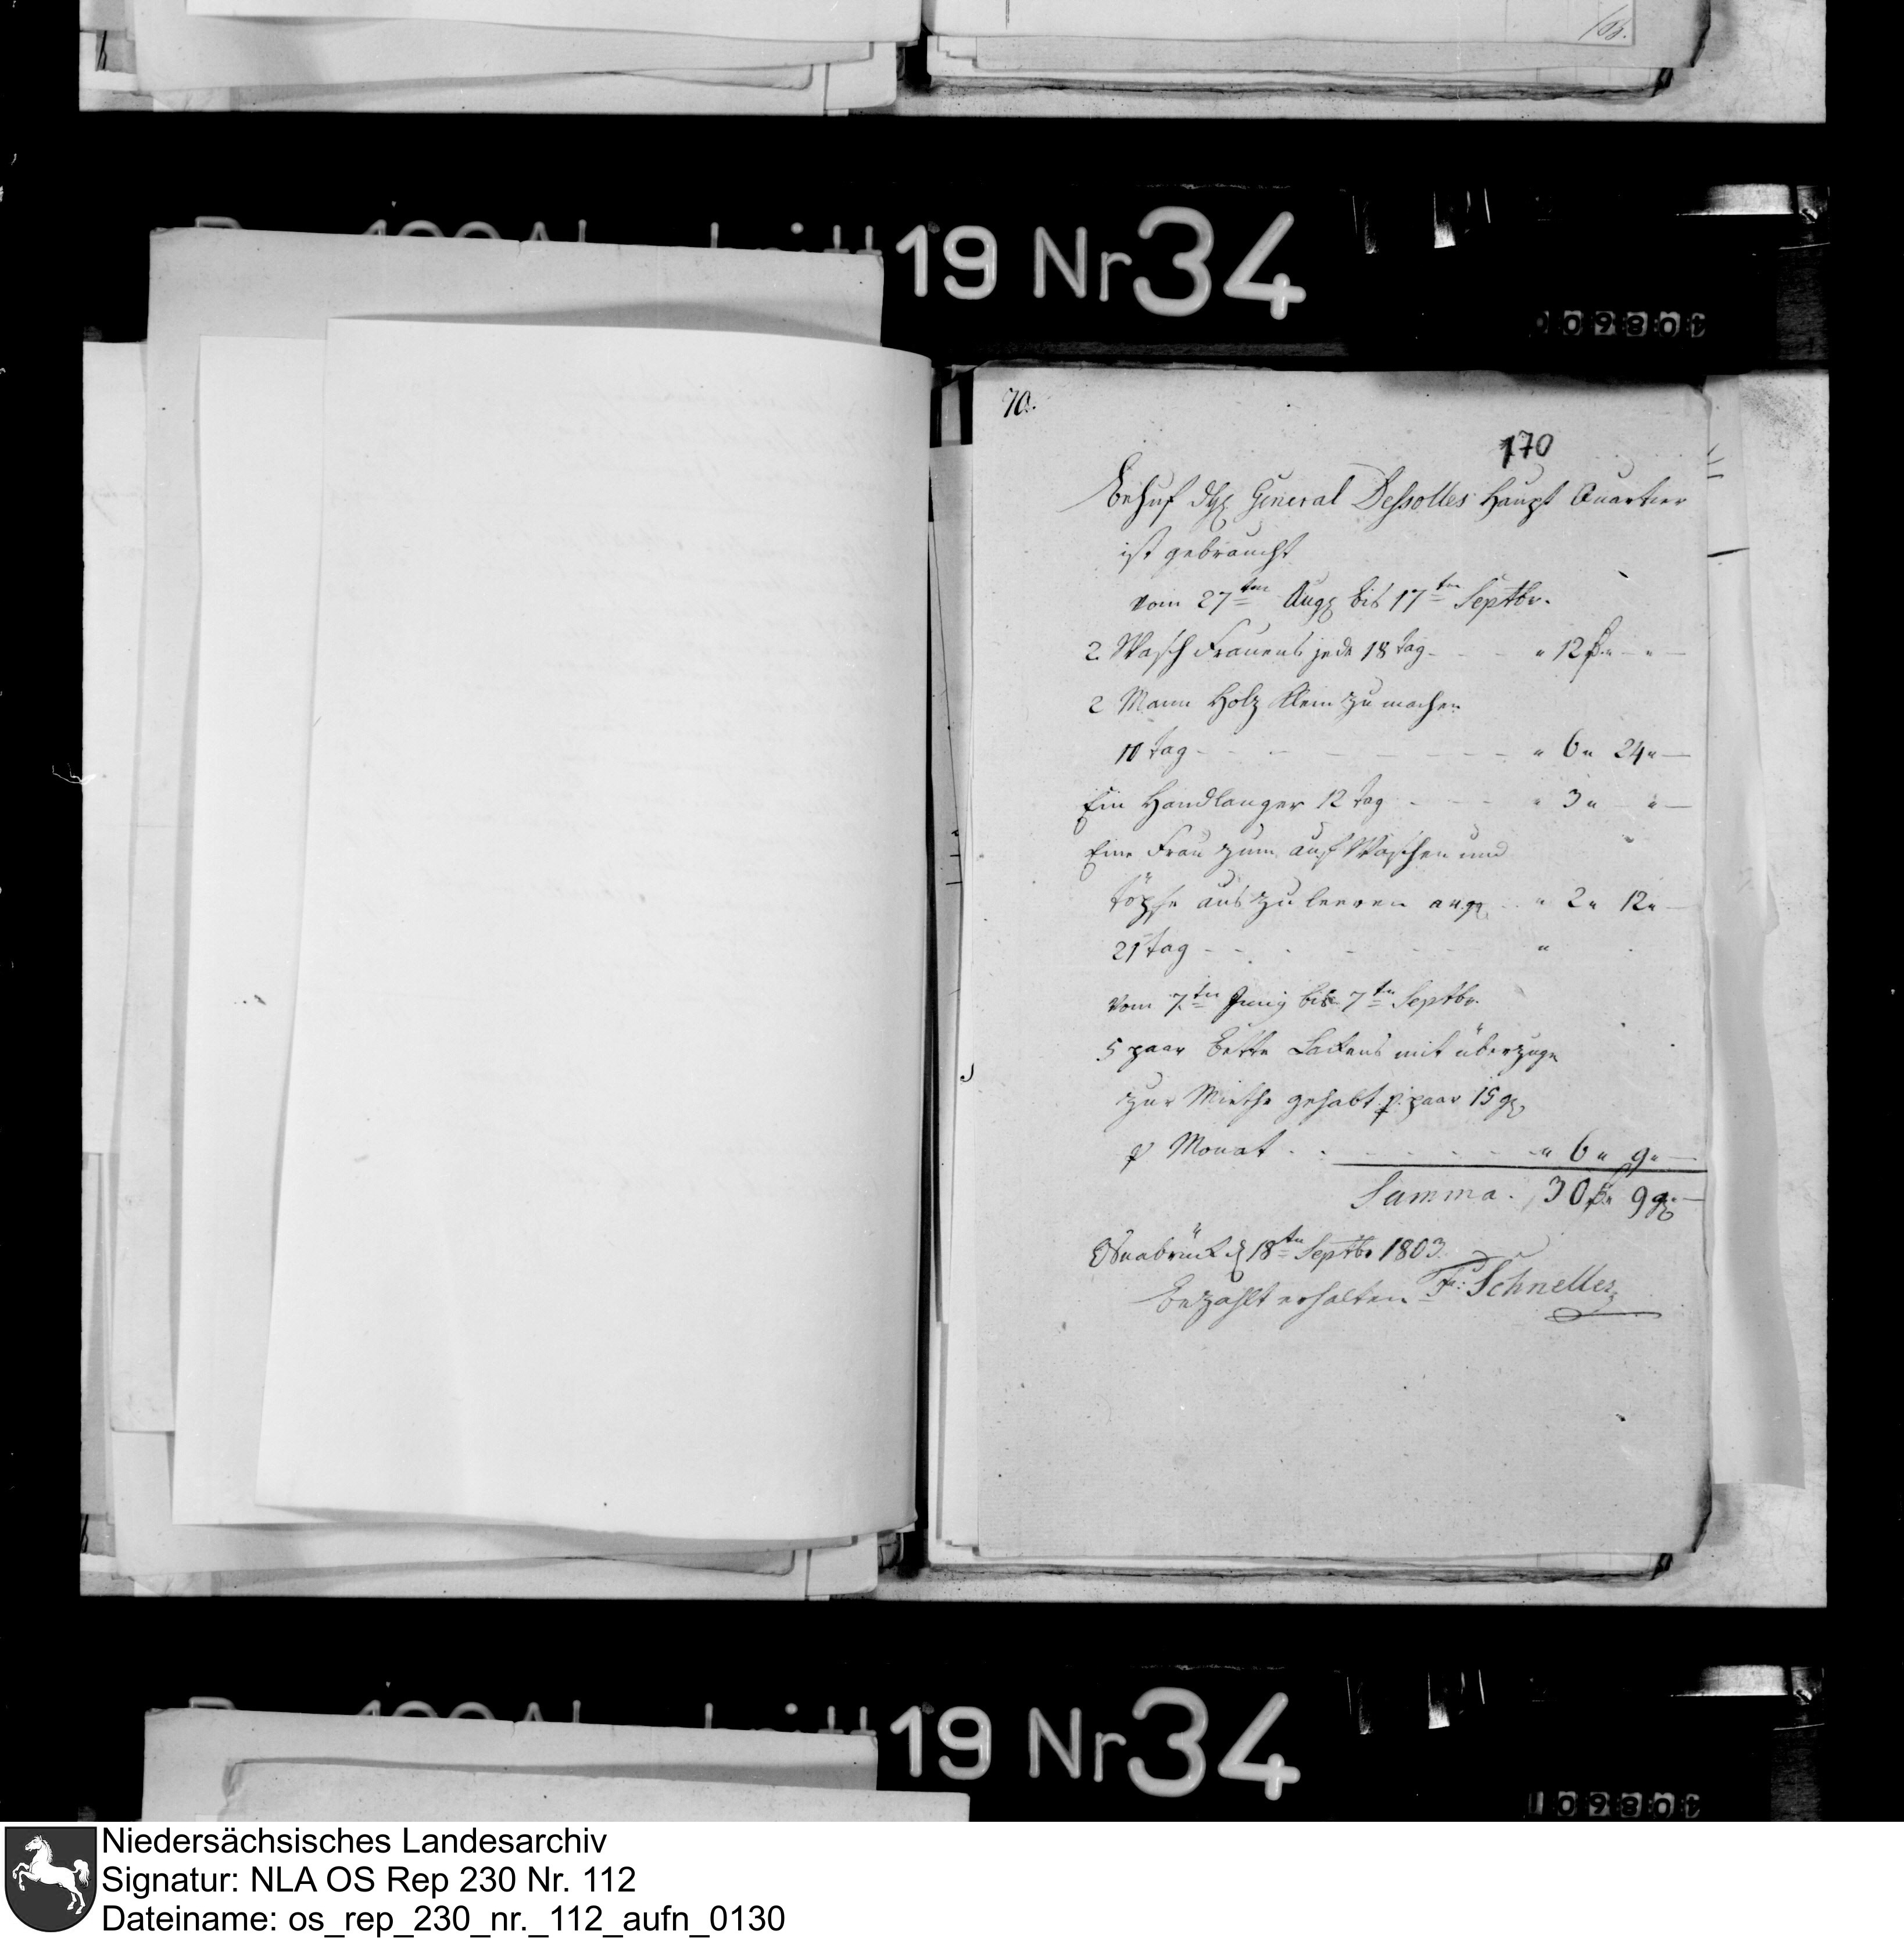 108.
19 Nr 34
109801
70.
170
Behuf des General Dessolles Haupt Quartier
ist gebraucht
vom 27ten Aug bis 17ten Septbr.
2 Wasch Frauens jede 18 tag - - - " 12 Rt " - " -
2 Mann Holz klein zu machen
10 tag - - - - - - - " 6 " 24 " -
Ein Handlanger 12 tag - - - " 3 " - " -
Eine Frau zum auf Waschen und
töpfe aus zu leeren " 2 " 12 " -
21 tag - - - - - - "
vom 7ten Juny bis 7ten Septbr.
5 paar Bette Lackens mit überzuge
zur Miethe gehabt p. paar 15 g
p Monat - - - - - - " 6 " 9 " -
Summa. 30 Rt " 9 g -
Osnabrück d 18ten Septbr 1803.
Bezahlt erhalten Fr: Schneller
19 Nr 34
109801
Niedersächsisches Landesarchiv
Signatur: NLA OS Rep 230 Nr. 112
Dateiname: os_rep_230_nr._112_aufn_0130